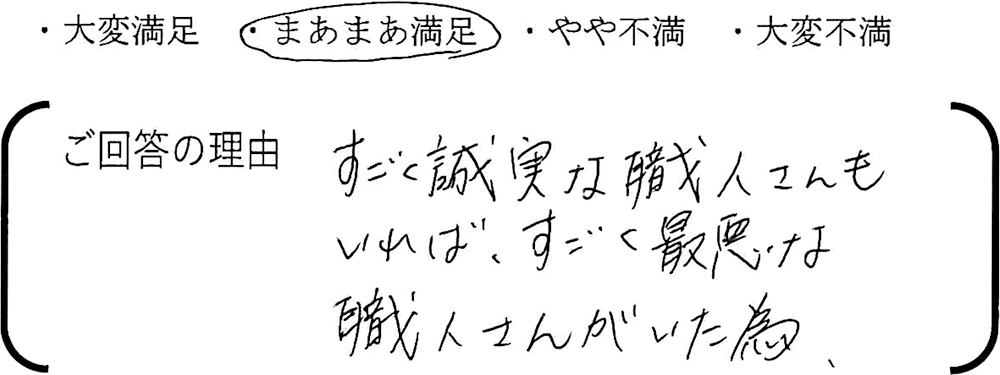 ・大変満足 ・まあまあ満足 ・やや不満 ・大変不満
ご回答の理由 すごく誠実な職人さんも
いれば、すごく最悪な
職人さんがいた為、